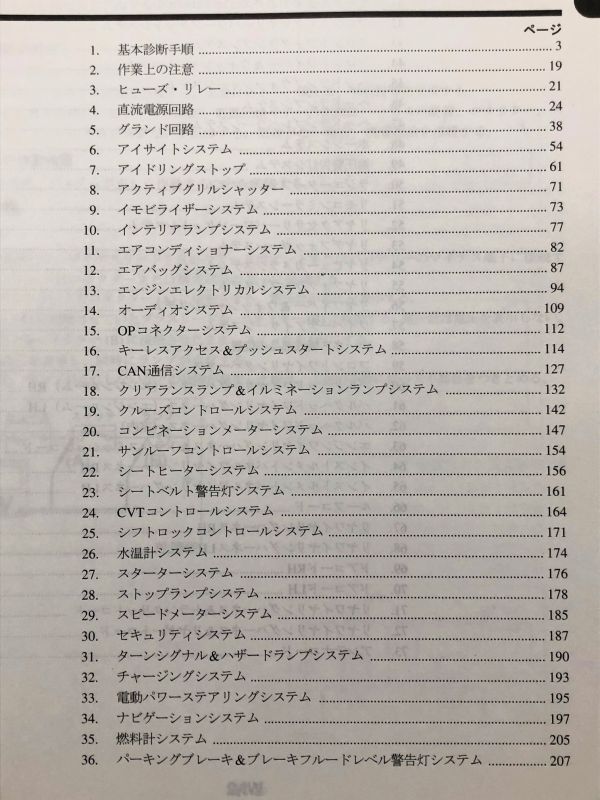 ページ
1. 基本診断手順 ........ 3
2. 作業上の注意 ........ 19
3. ヒューズ・リレー ........ 21
4. 直流電源回路 ........ 24
5. グランド回路 ........ 38
6. アイサイトシステム ........ 54
7. アイドリングストップ ........ 61
8. アクティブグリルシャッター ........ 71
9. イモビライザーシステム ........ 73
10. インテリアランプシステム ........ 77
11. エアコンディショナーシステム ........ 82
12. エアバッグシステム ........ 87
13. エンジンエレクトリカルシステム ........ 94
14. オーディオシステム ........ 109
15. OPコネクターシステム ........ 112
16. キーレスアクセス&プッシュスタートシステム ........ 114
17. CAN通信システム ........ 127
18. クリアランスランプ&イルミネーションランプシステム ........ 132
19. クルーズコントロールシステム ........ 142
20. コンビネーションメーターシステム ........ 147
21. サンルーフコントロールシステム ........ 154
22. シートヒーターシステム ........ 156
23. シートベルト警告灯システム ........ 161
24. CVTコントロールシステム ........ 164
25. シフトロックコントロールシステム ........ 171
26. 水温計システム ........ 174
27. スターターシステム ........ 176
28. ストップランプシステム ........ 178
29. スピードメーターシステム ........ 185
30. セキュリティシステム ........ 187
31. ターンシグナル&ハザードランプシステム ........ 190
32. チャージングシステム ........ 193
33. 電動パワーステアリングシステム ........ 195
34. ナビゲーションシステム ........ 197
35. 燃料計システム ........ 205
36. パーキングブレーキ&ブレーキフルードレベル警告灯システム ........ 207